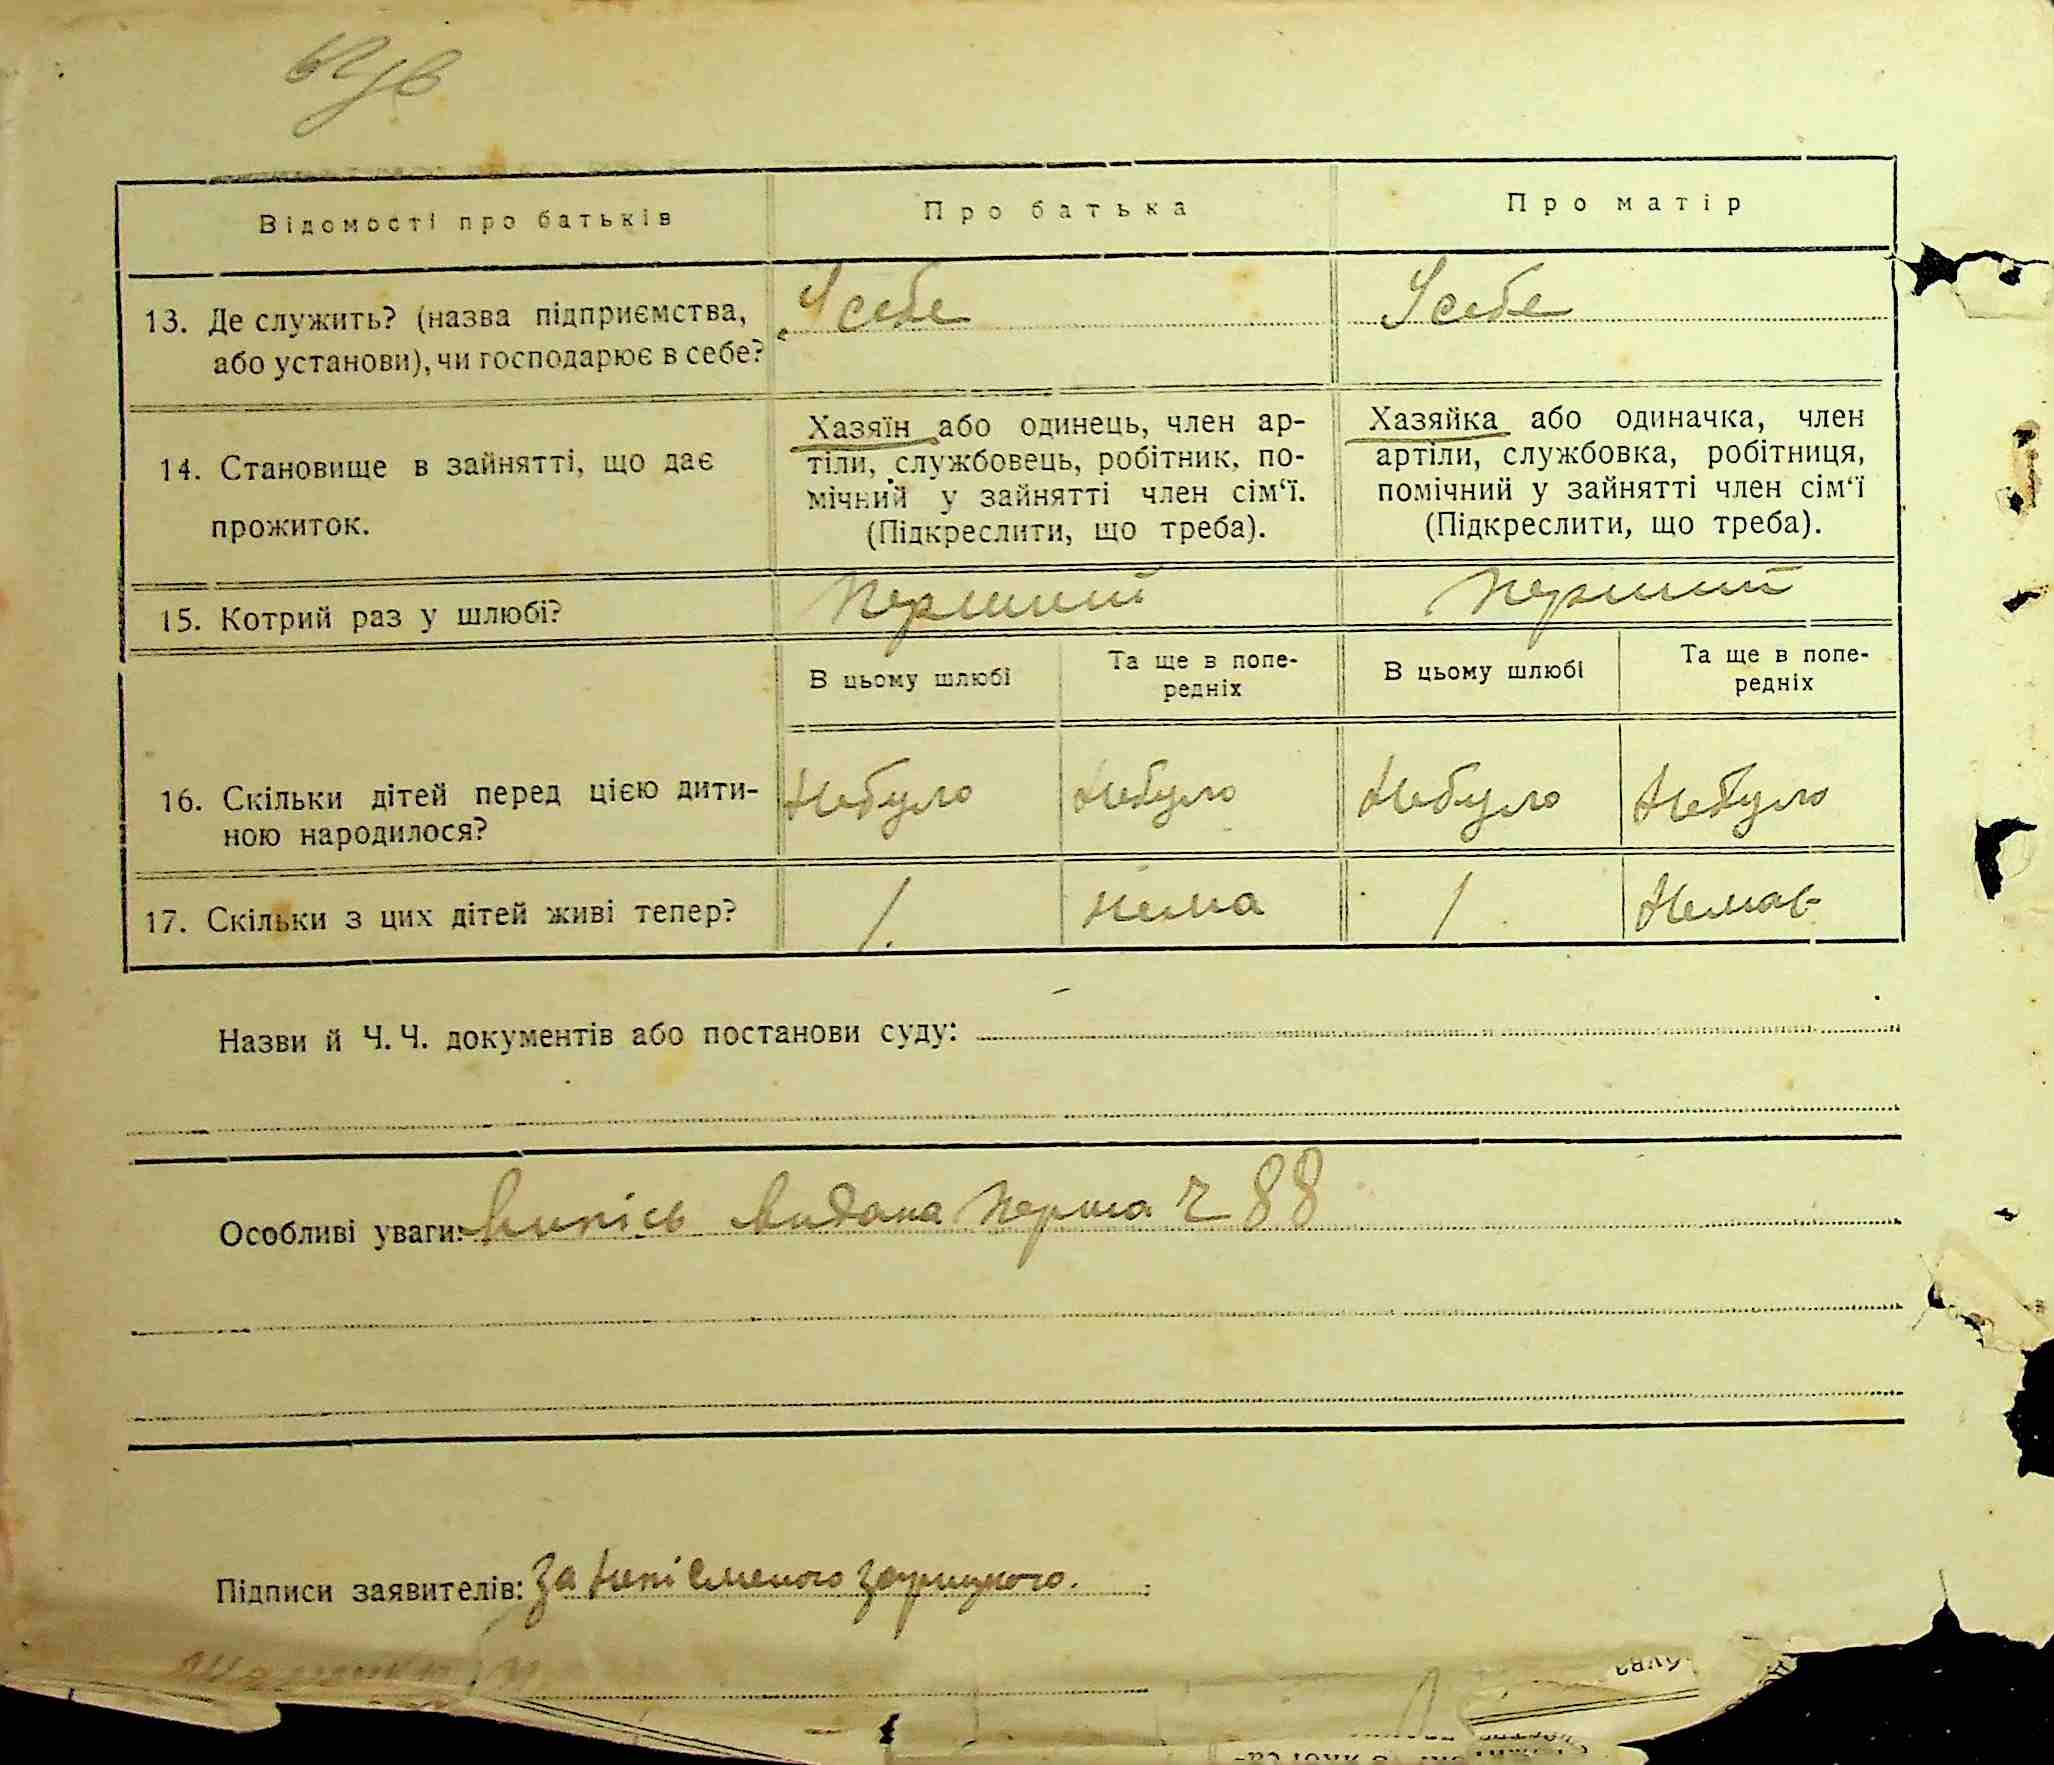 Відомості про батьків Про батька Про матір
13. Де служить? (назва підприємства, або установи), чи господарює в себе? У себе У себе
14. Становище в зайнятті, що дає прожиток.
Хазяїн або одинець, член ар-
тіли, службовець, робітник, по-
мічний у зайнятті член сім‘ї.
(Підкреслити, що треба).
Хазяйка або одиначка, член
артіли, службовка, робітниця,
помічний у зайнятті член сім‘ї
(Підкреслити, що треба).
15. Котрий раз у шлюбі? Перший Перший
В цьому шлюбі Та ще в попе-
редніх В цьому шлюбі Та ще в попе-
редніх
16. Скільки дітей перед цією дити-
ною народилося? Небуло Небуло Небуло Небуло
17. Скільки з цих дітей живі тепер? 1. нема 1 Немає
Назви й Ч. Ч. документів або постанови суду:
Особливі уваги: Випісь видана Перша ч 88
Підписи заявителів: За непісьменого